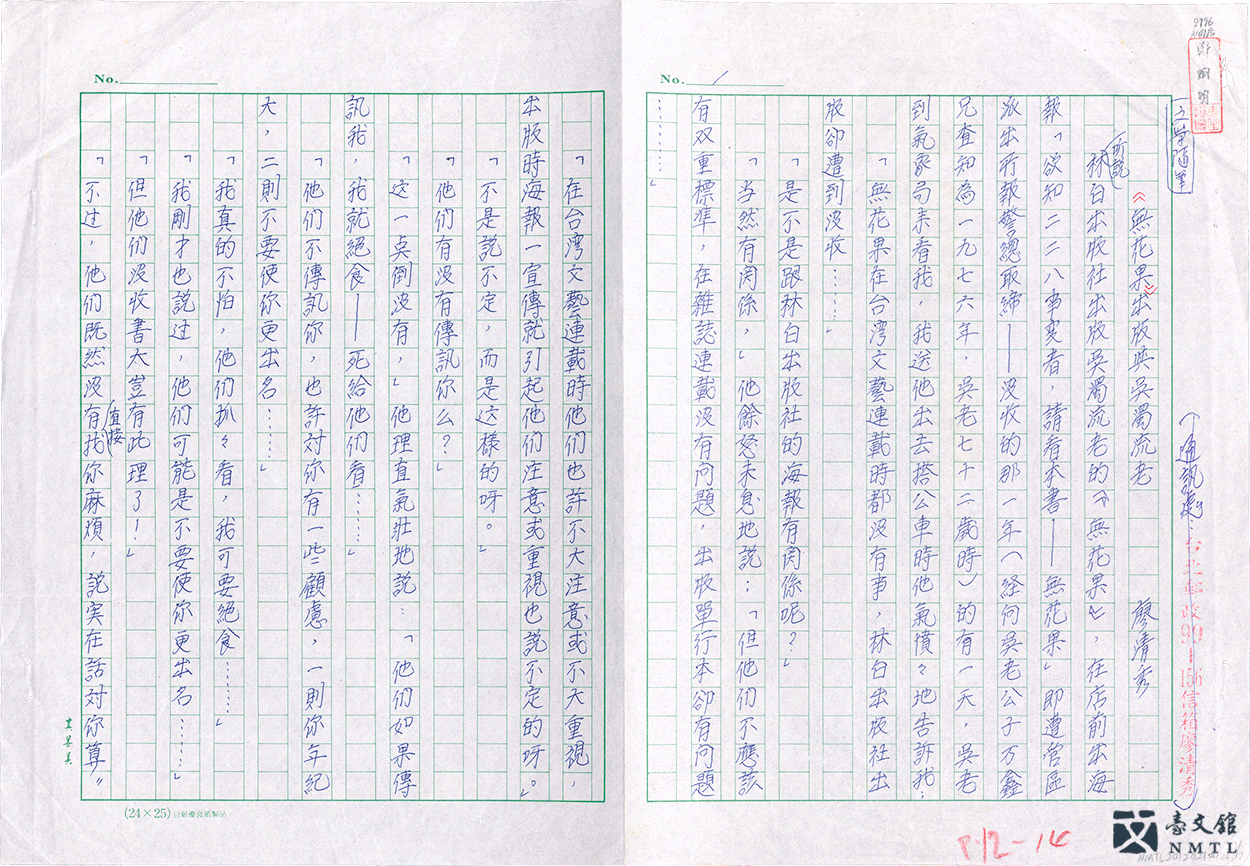 No. 1
文學隨筆
（通訊處：台北郵政99－156信箱廖清秀）
《無花果》出版與吳濁流老 廖清秀
林白出版社出版吳濁流老的《無花果》，在店前出海
所說
報「欲知二二八事变者，請看本書——無花果」即遭管區
派出所報警總取締——沒收的那一年（経向吳老公子万鑫
兄查知為一九七六年，吳老七十二歲時）的有一天，吳老
到氣象局来看我，我送他出去搭公車時他氣憤々地告訴我：
「無花果在台湾文藝連載時都沒有事，林白出版社出
版卻遭到沒收……」
「是不是跟林白出版社的海報有関係呢？」
「当然有関係，」他餘怒未息地說：「但他们不應該
有双重標準，在雜誌連載没有問題，出版單行本卻有問題
………」
No.
「在台湾文藝連載時他们也許不大注意或不大重視，
出版時海報一宣傳就引起他们注意或重視也說不定的呀。」
「不是說不定，而是这樣的呀。」
「他们有沒有傳訊你么？」
「这一点倒沒有，」他理直氣壯地說：「他们如果傳
訊我，我就絕食——死給他们看……」
「他们不傳訊你，也許对你有一些顧慮，一則你年紀
大，二則不要使你更出名……」
「我真的不怕，他们抓々看，我可要絕食……」
「我剛才也說过，他们可能是不要使你更出名……」
「但他们没收書太豈有此理了！」
直接
「不过，他们既然沒有找你麻煩，說实在話对你算〝
(24×25)日新優良紙製品
P.12-14
臺文館
NMTL